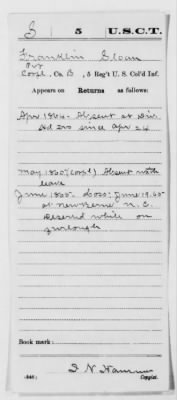 S | 5 | U.S.C.T.
Franklin Sloan
Pvt
Corpl, Co. B, 5 Reg't U. S. Col'd Inf.
Appears on Returns as follows:
Apr 1864. Absent at Div.
Hd Qrs since Apr 24
May 1865 (Corpl) Absent with
leave
June 1865. Loss: June 19.65
at New Berne N. C.
Deserted while on
furlough
Book mark:
(546)
Copyist.